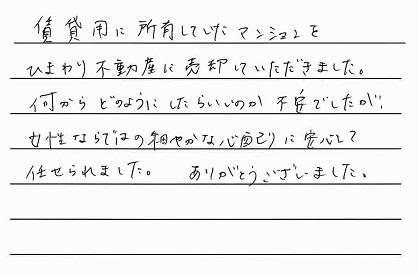 賃貸用に所有していたマンションを
ひまわり不動産に売却していただきました。
何からどのようにしたらいいのか不安でしたが、
女性ならではの細やかな心配りに安心して
任せられました。 ありがとうございました。